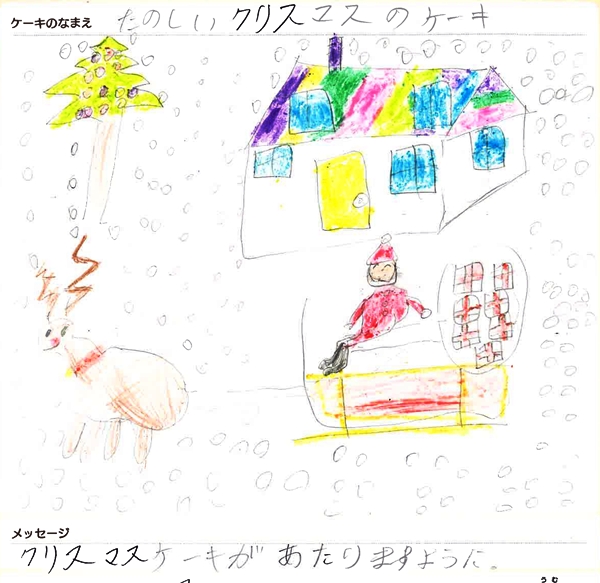 ケーキのなまえ たのしいクリスマスのケーキ
メッセージ
クリスマスケーキがあたりますように。